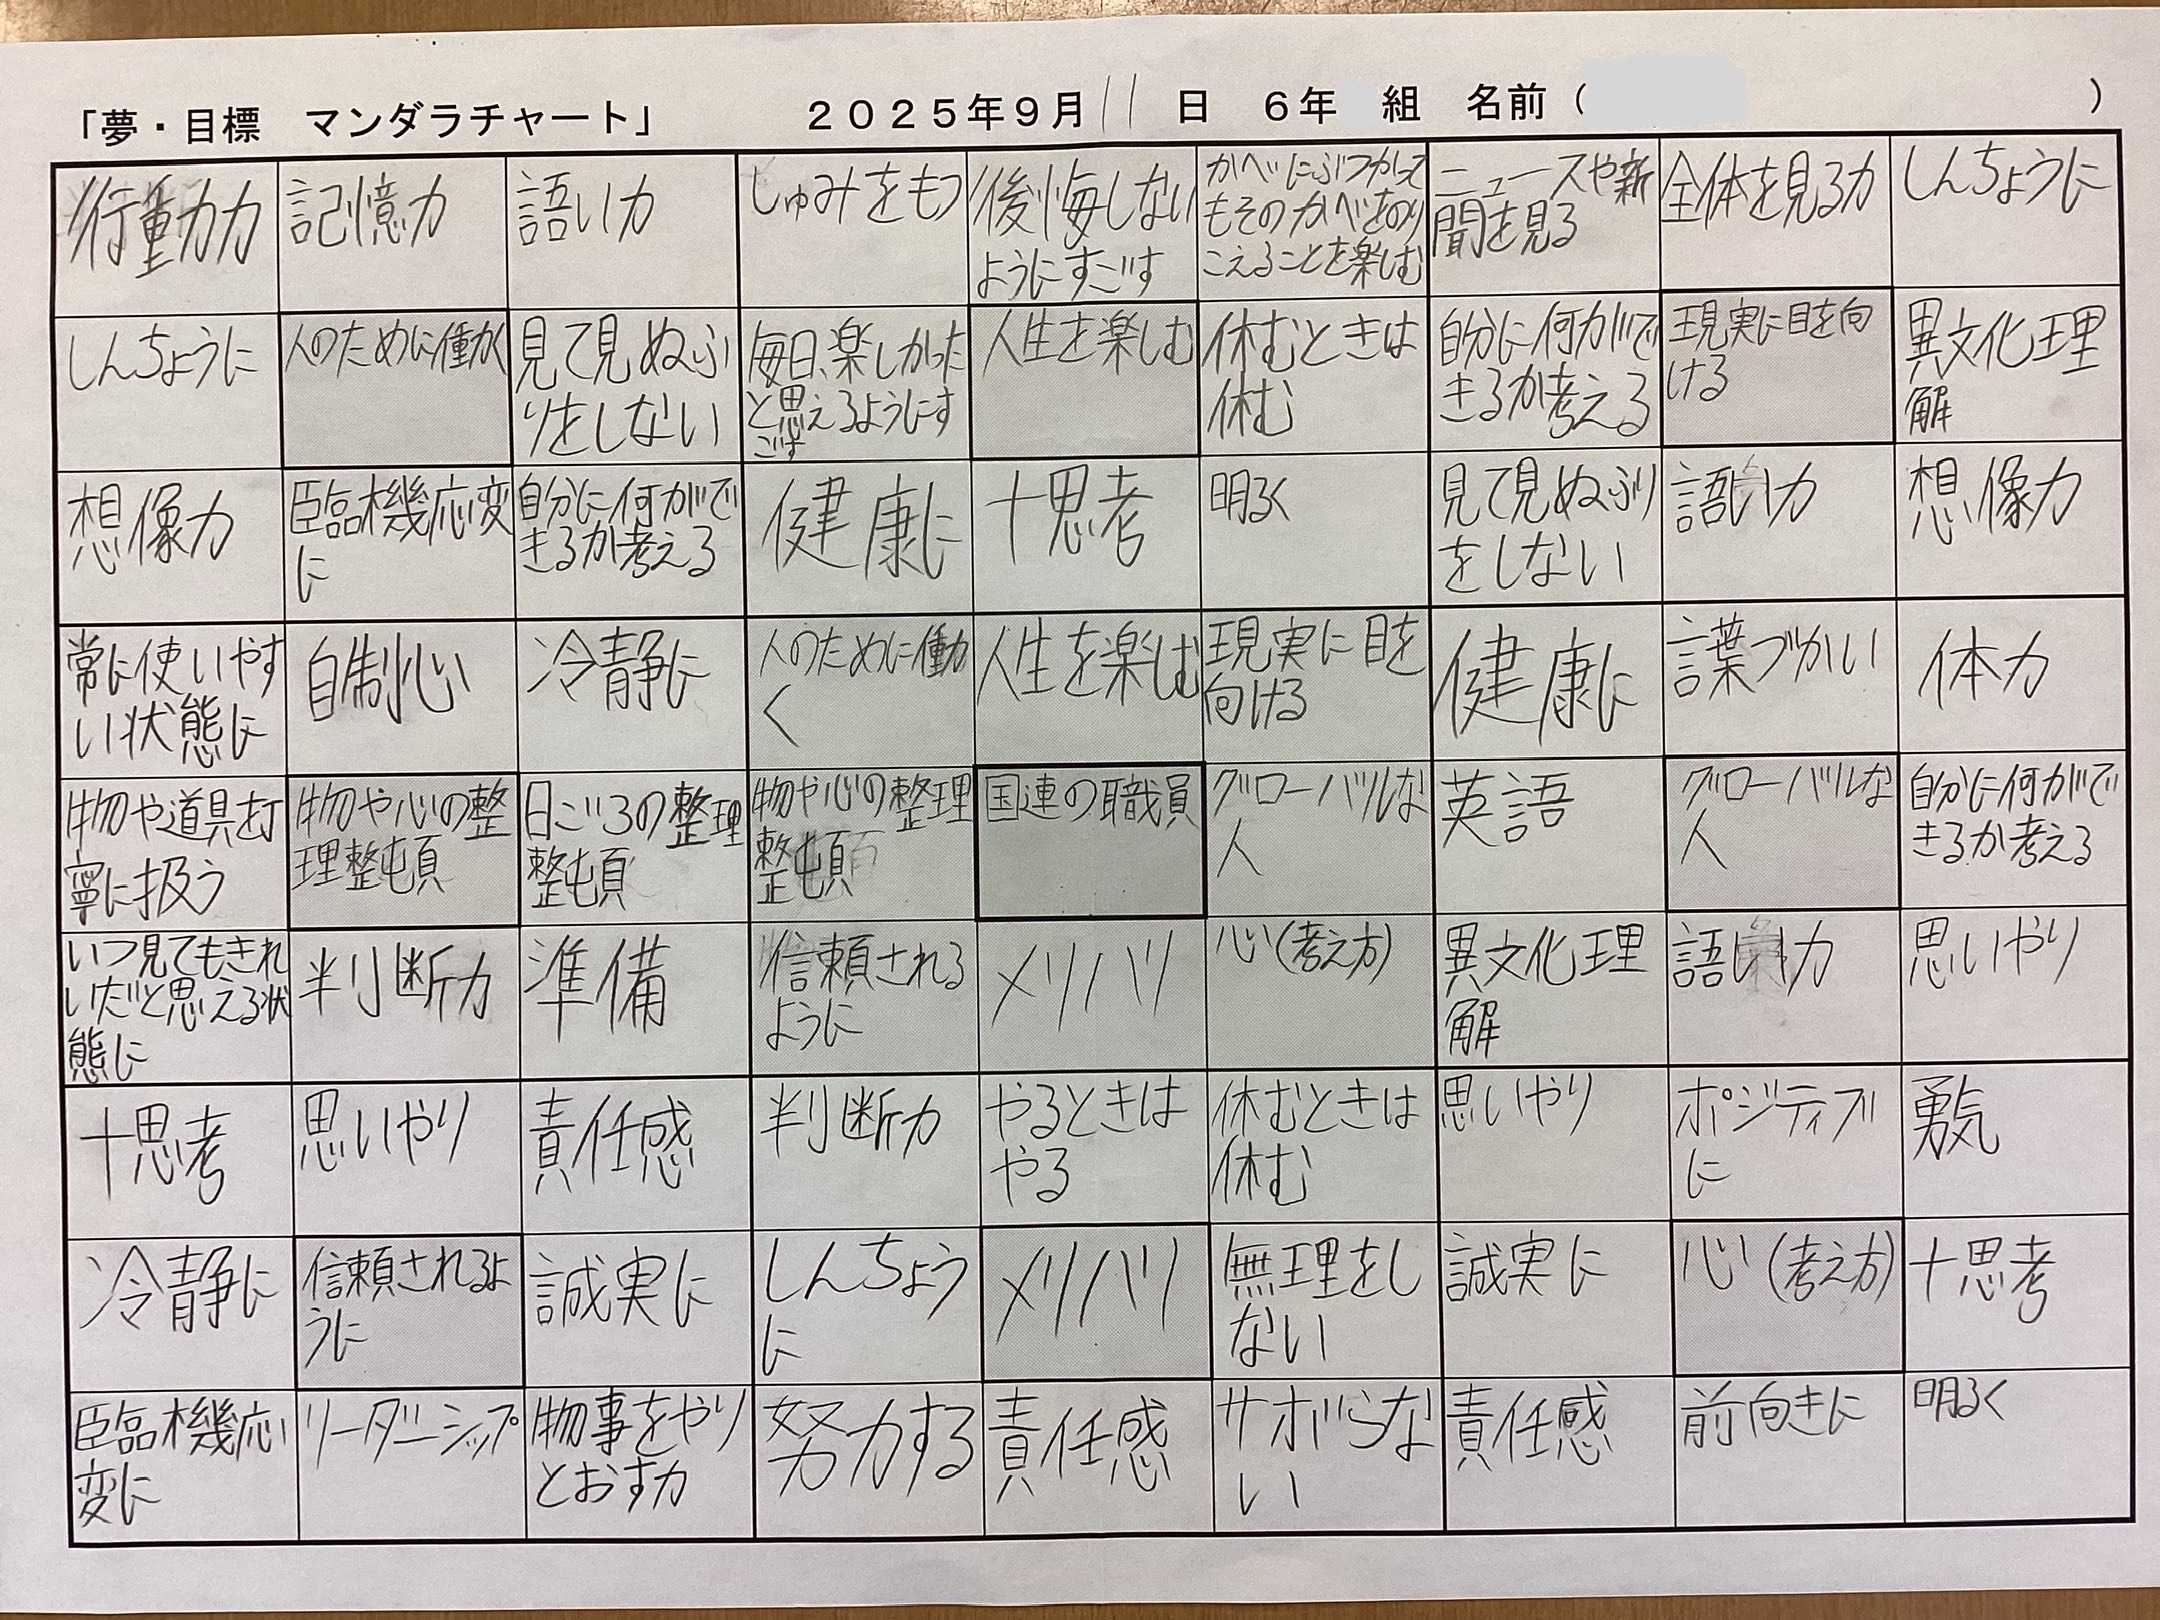 「夢・目標　マンダラチャート」　２０２５年９月11日　６年　組　名前（　）
行動力
記憶力
語い力
しゅみをもつ
後悔しない
ようにすごす
かべにぶつかって
もそのかべをのり
こえることを楽しむ
ニュースや新
聞を見る
全体を見る力
しんちょうに
しんちょうに
人のために働く
見て見ぬふ
りをしない
毎日、楽しかった
と思えるようにす
ごす
人生を楽しむ
休むときは
休む
自分に何がで
きるか考える
現実に目を向
ける
異文化理
解
想像力
臨機応変
に
自分に何がで
きるか考える
健康に
＋思考
明るく
見て見ぬふり
をしない
語い力
想像力
常に使いやす
い状態に
自制心
冷静に
人のために働
く
人生を楽しむ
現実に目を
向ける
健康に
言葉づかい
体力
物や道具を丁
寧に扱う
物や心の整
理整頓
日ごろの整理
整頓
物や心の整理
整頓
国連の職員
グローバルな
人
英語
グローバルな
人
自分に何がで
きるか考える
いつ見てもきれ
いだと思える状
態に
判断力
準備
信頼される
ように
メリハリ
心（考え方）
異文化理
解
語い力
思いやり
＋思考
思いやり
責任感
判断力
やるときは
やる
休むときは
休む
思いやり
ポジティブ
に
勇気
冷静に
信頼されるよ
うに
誠実に
しんちょう
に
メリハリ
無理をし
ない
誠実に
心（考え方）
＋思考
臨機応
変に
リーダーシップ
物事をやり
とおす力
努力する
責任感
サボらな
い
責任感
前向きに
明るく